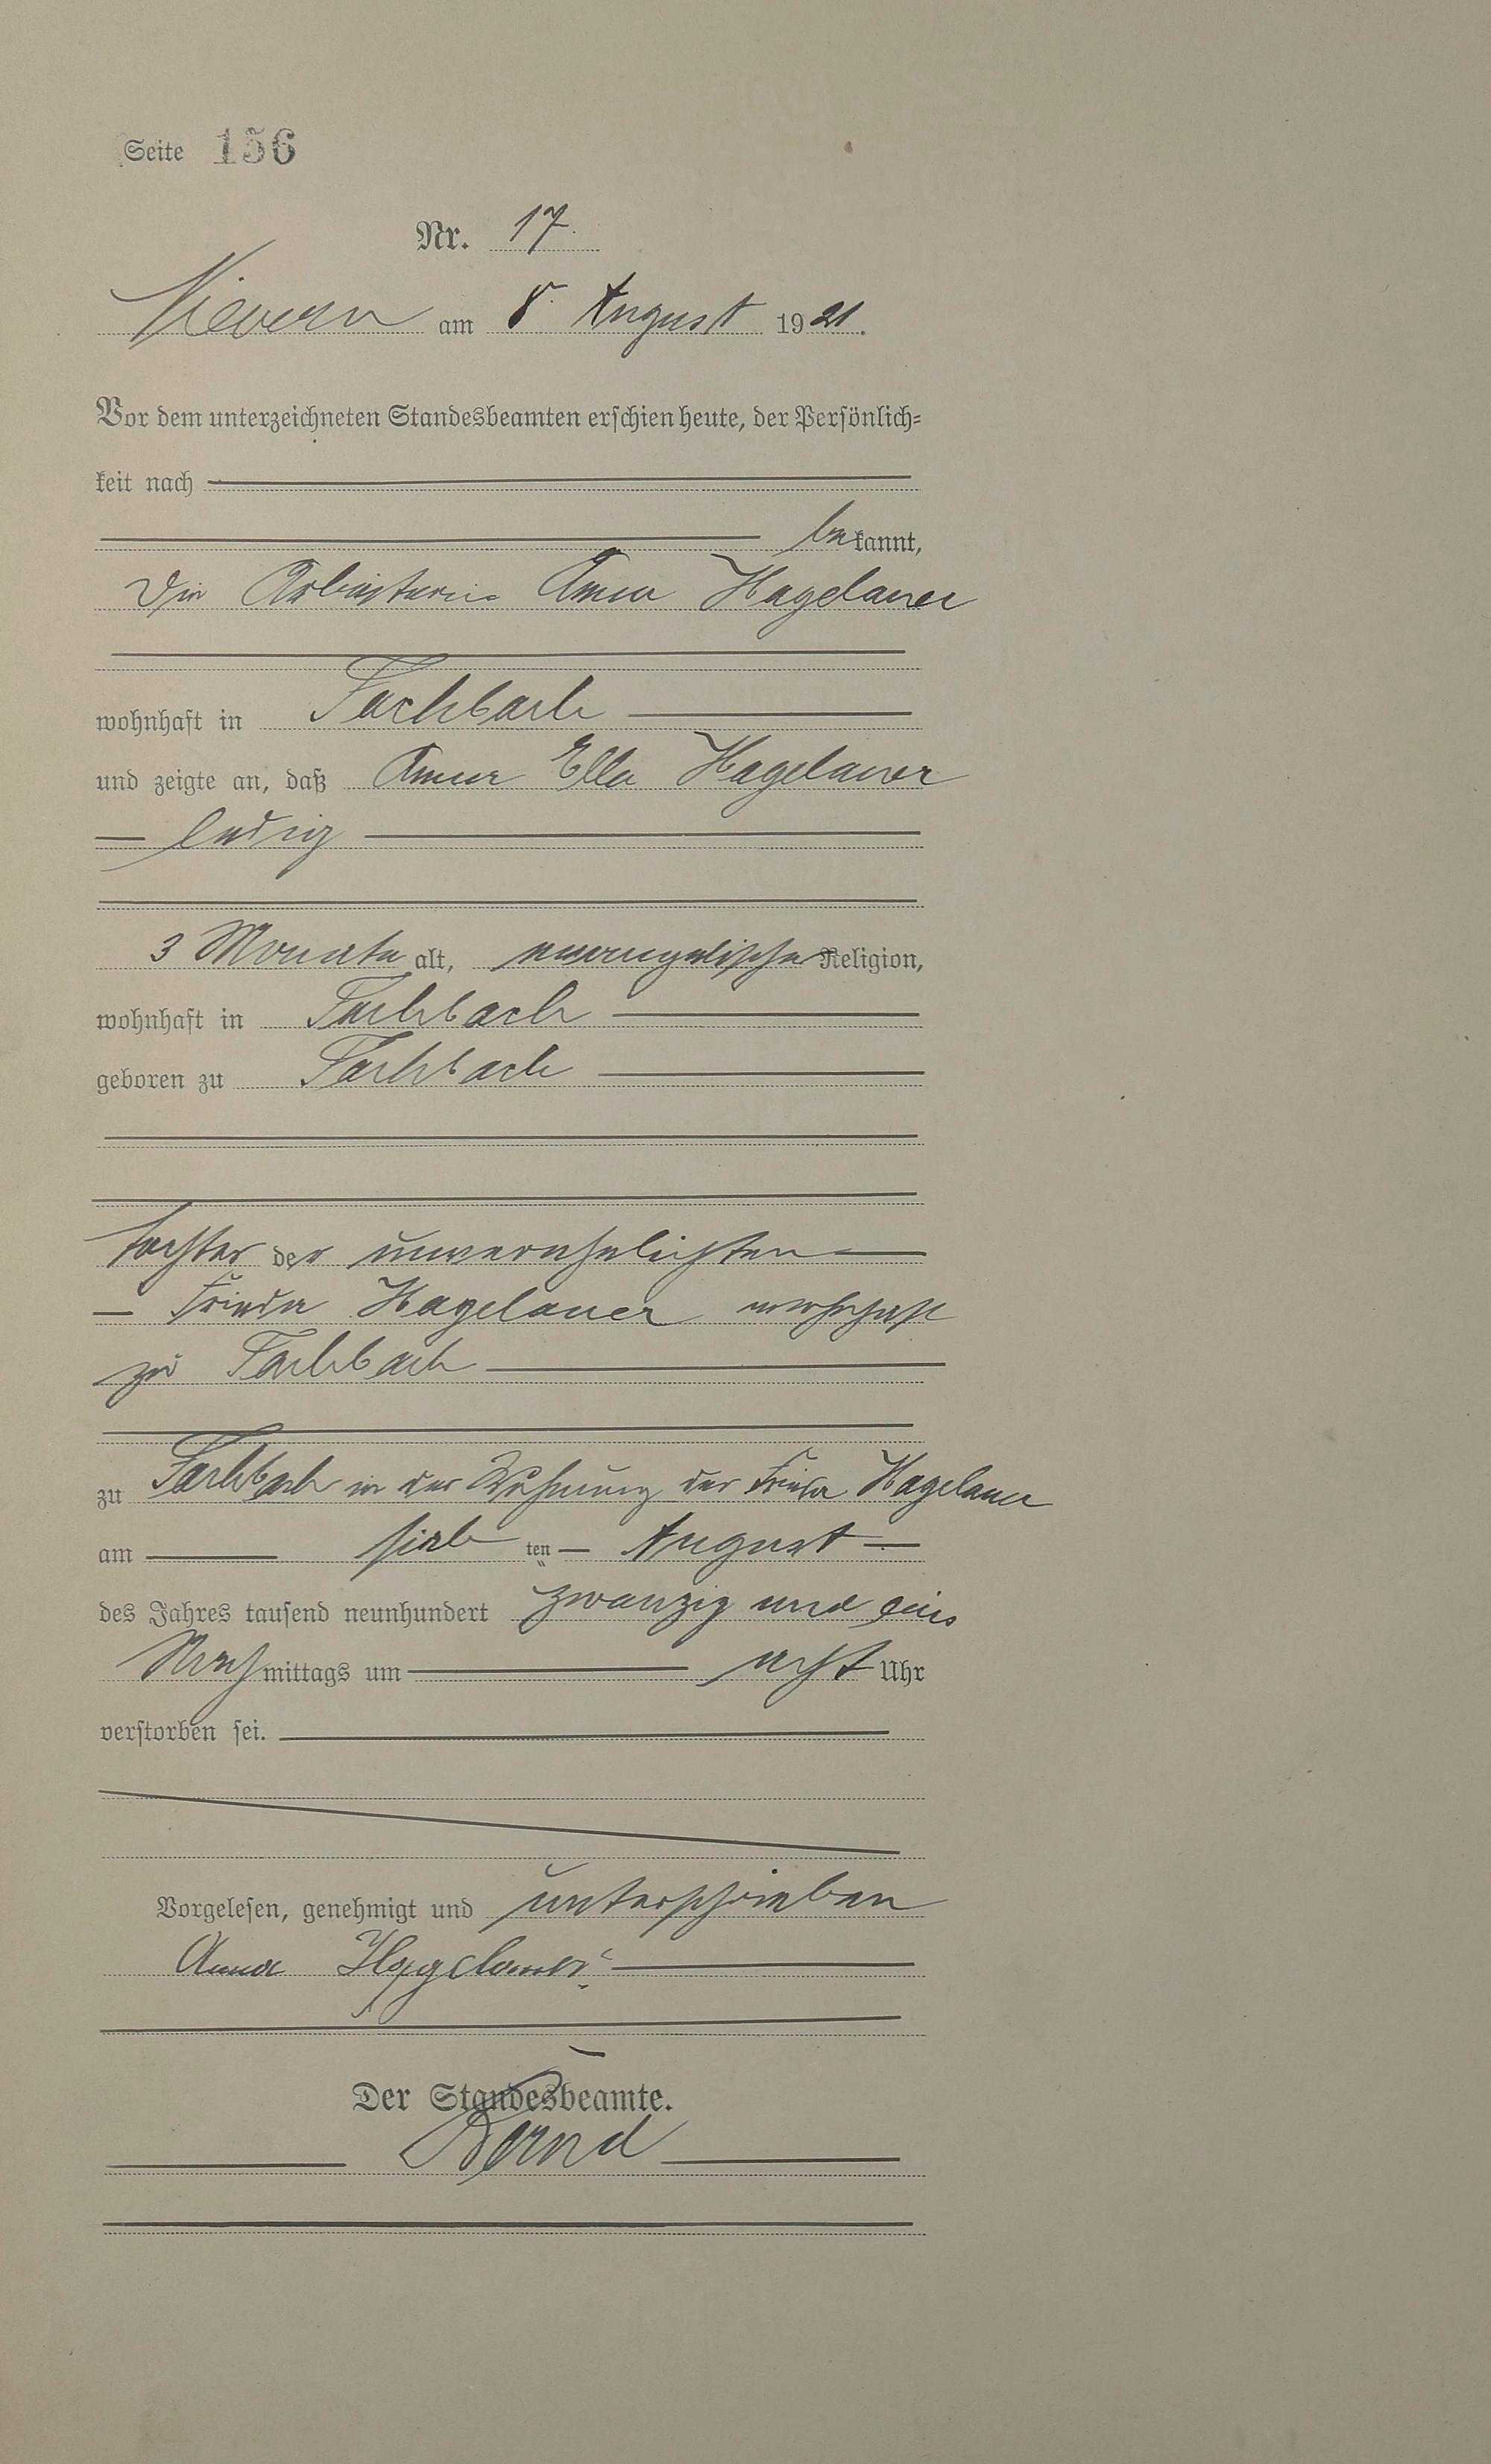 Seite 156
Nr. 17.
Nievern am 8. August 1921.
Vor dem unterzeichneten Standesbeamten erschien heute, der Persönlich-
keit nach
bekannt,
die Arbeiterin Anna Hagelauer
wohnhaft in Fachbach
und zeigte an, daß Anna Ella Hagelauer
ledig
3 Monate alt, evangelischer Religion,
wohnhaft in Fachbach
geboren zu Fachbach
Tochter der unverehelichten
Frieda Hagelauer wohnhaft
zu Fachbach
zu Fachbach in der Wohnung der Frieda Hagelauer
am siebten August
des Jahres tausend neunhundert zwanzig und eins
Nachmittags um acht Uhr
verstorben sei.
Vorgelesen, genehmigt und unterschrieben
Anna Hagelauer
Der Standesbeamte.
Bernd